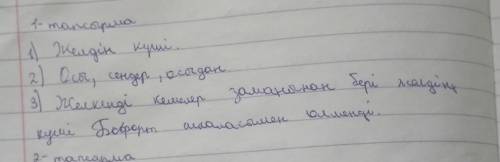 1-тапсырма
1) Желдін күші.
2) Осы, сендер, осыдан
3) Желкенді кемелер заманынан бері желдің
күші Бофорт шкаласымен өлшенді.
2-тапсырма